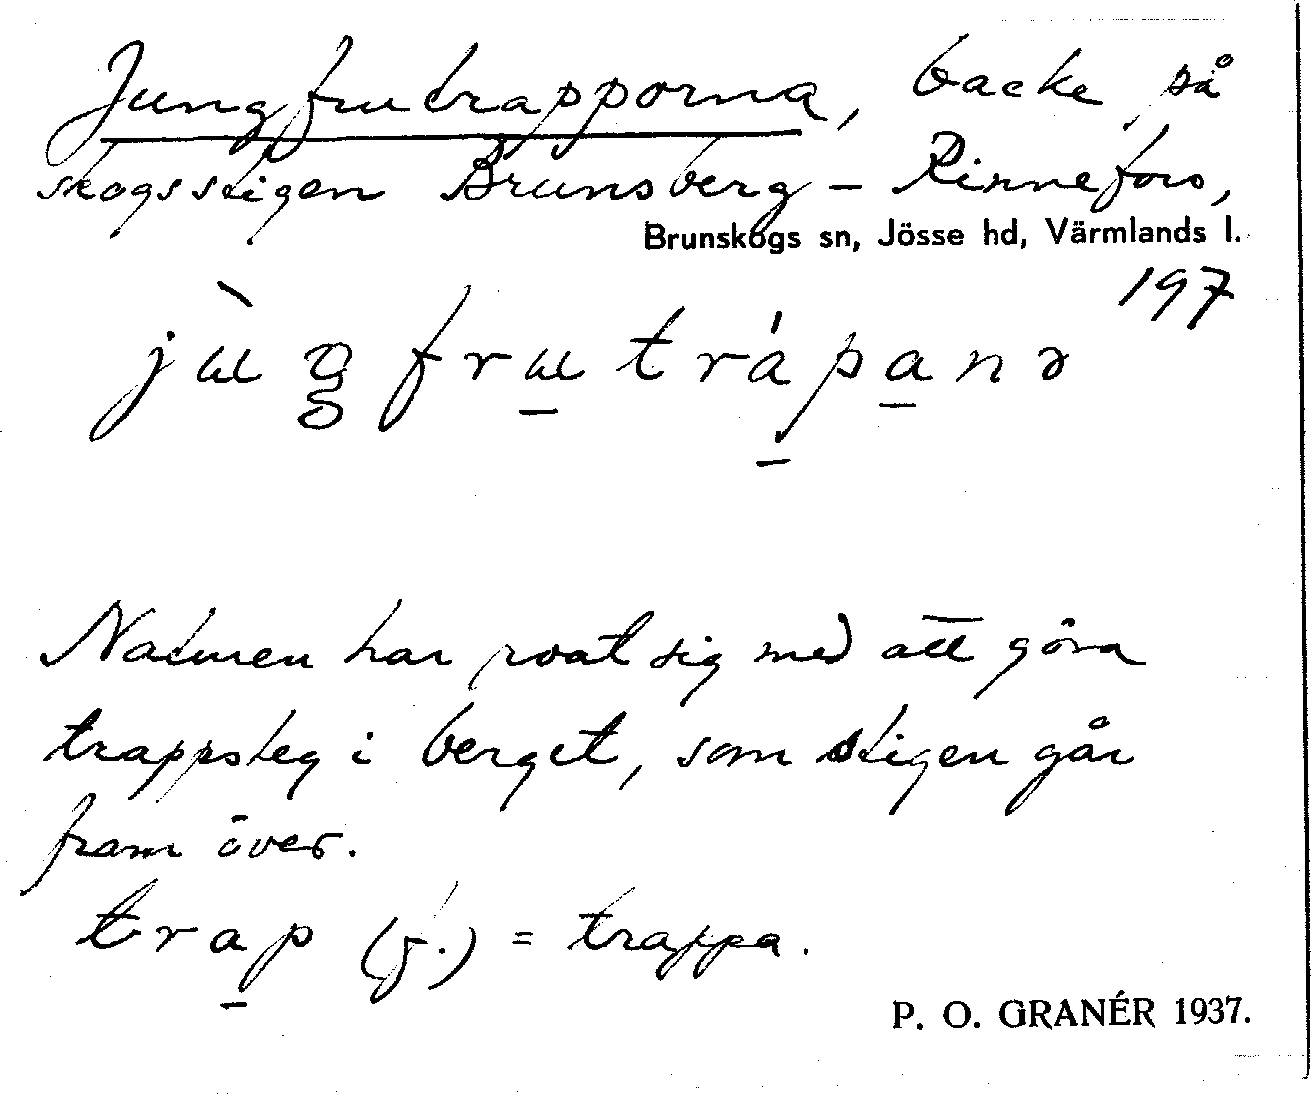 Jungfrutrapporna, backe på
skogsstigen Brunsberg – Rinnefors,
Brunskogs sn, Jösse hd, Värmlands l.
197
Naturen har roat sig med att göra
trappsteg i berget, som stigen går
fram över.
trap (f.) = trappa.
P. O. GRANÉR 1937.